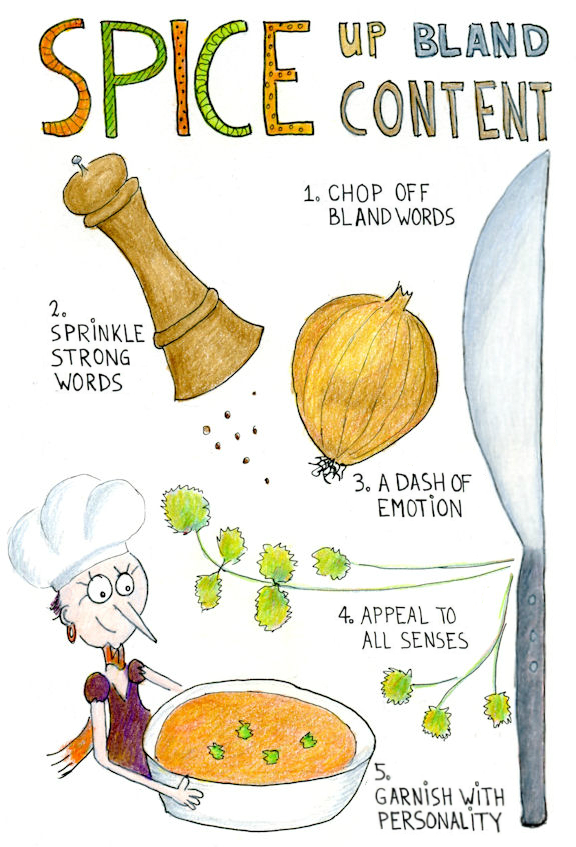 SPICE UP BLAND
CONTENT
1. CHOP OFF
BLAND WORDS
2.
SPRINKLE
STRONG
WORDS
3. A DASH OF
EMOTION
4. APPEAL TO
ALL SENSES
5.
GARNISH WITH
PERSONALITY